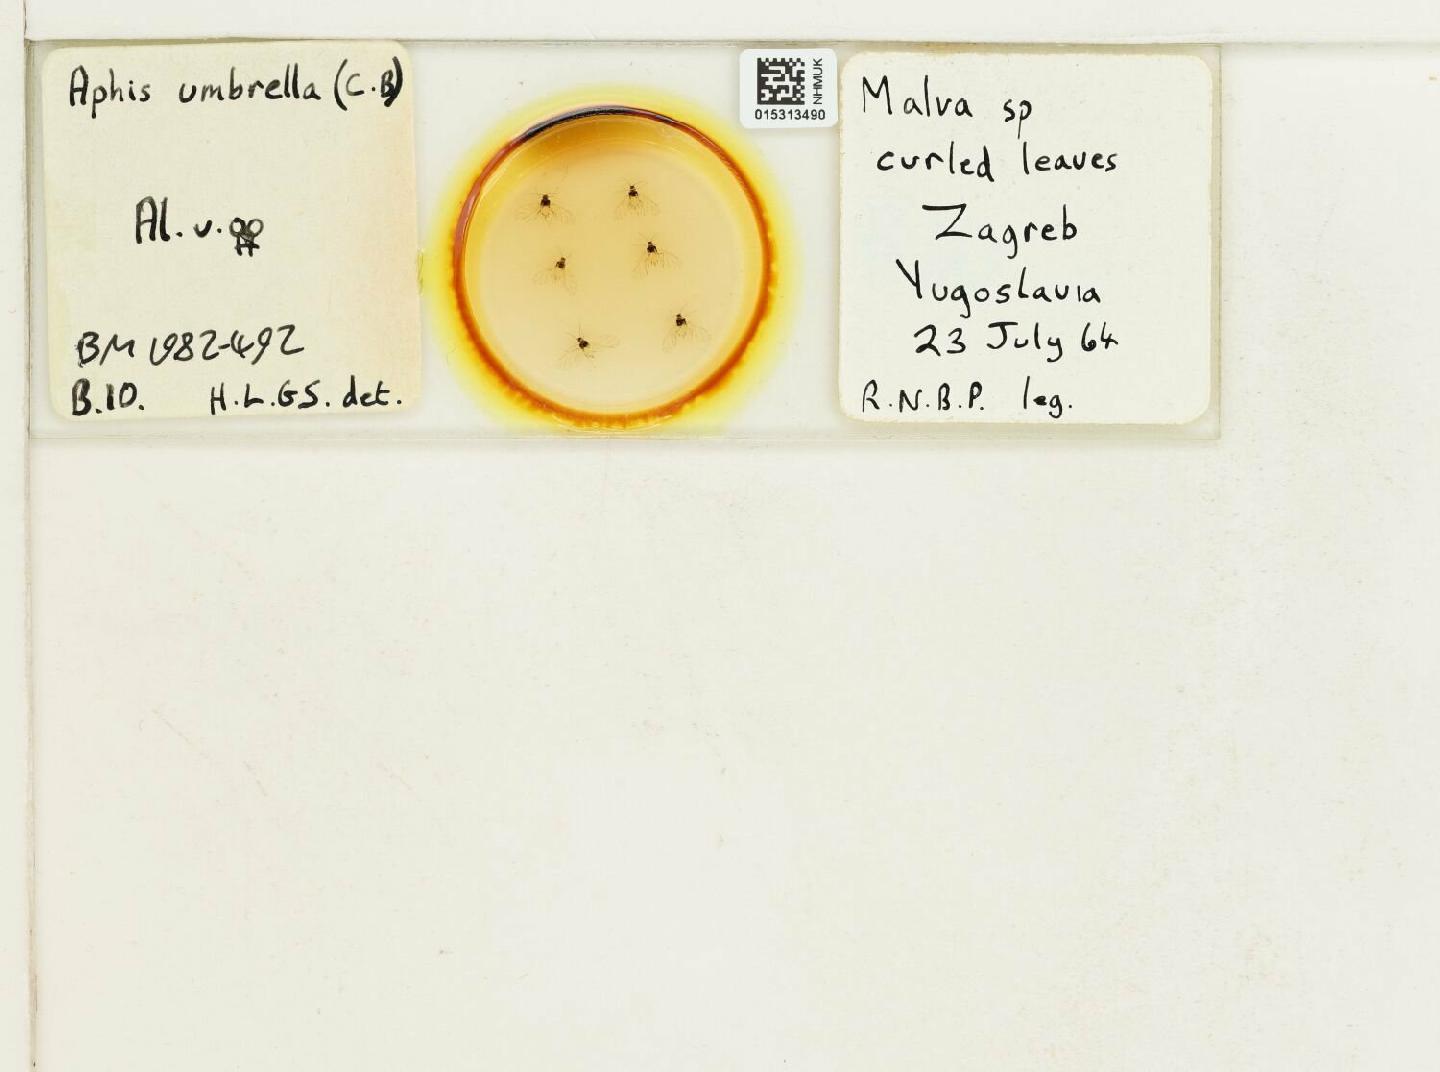 Aphis umbrella (C.B)
Al. v. ♀♀
BM 1982-492
B.10. H.L.G.S. det.
NHMUK
015313490
Malva sp
curled leaves
Zagreb
Yugoslavia
23 July 64
R.N.B.P. leg.